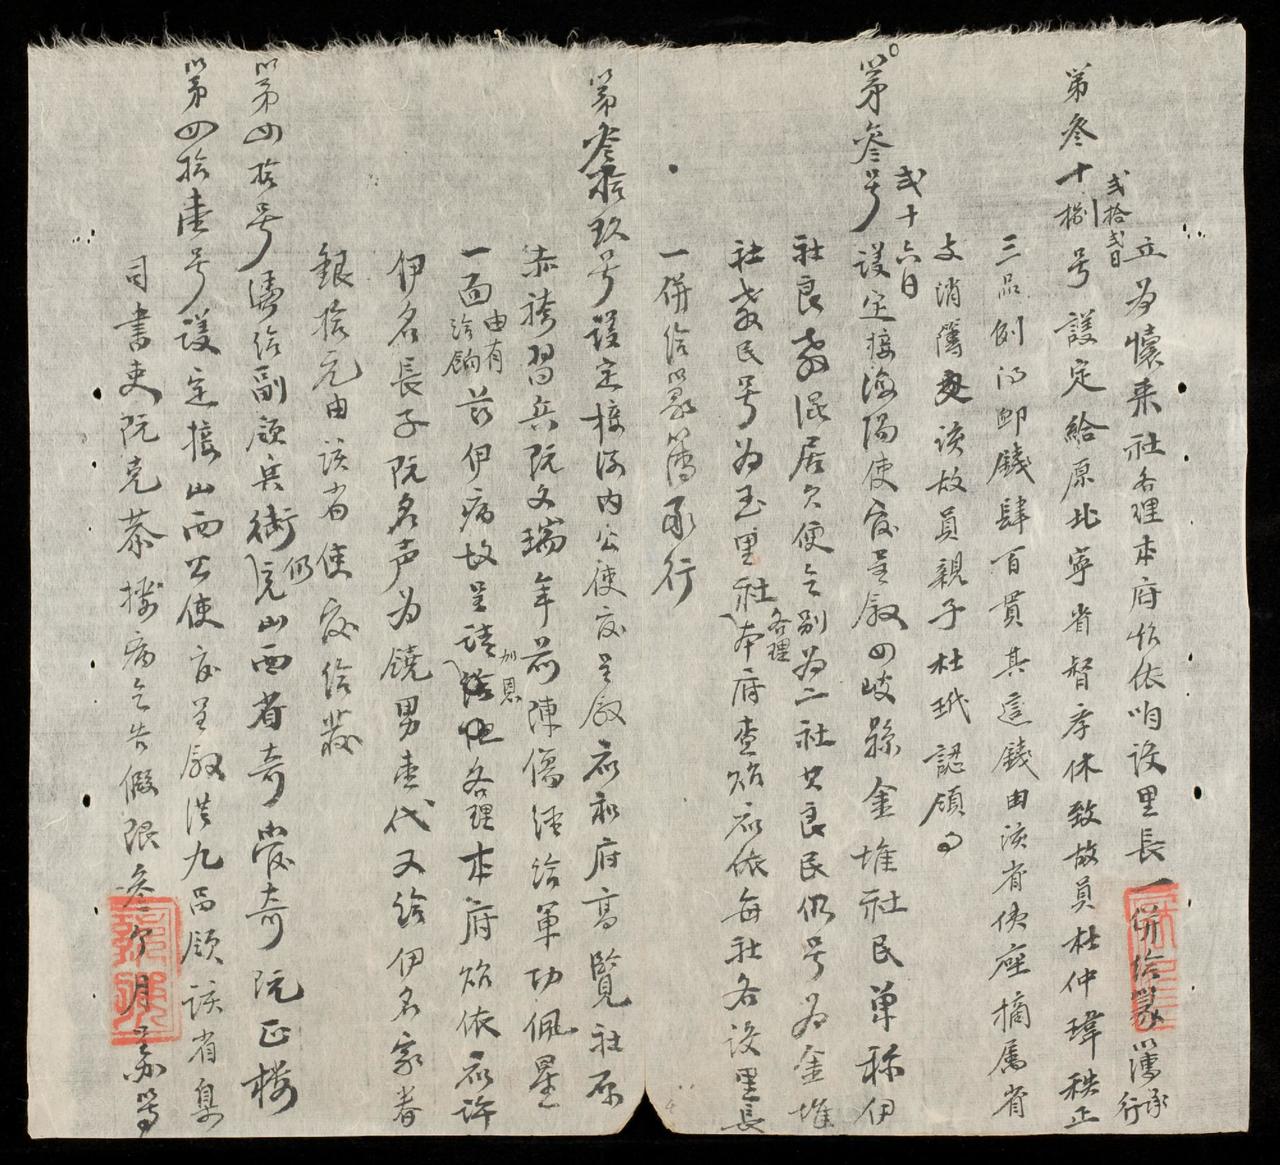 立為懷来社各理本府炤依咱設里長一併給篆簿承行
弍拾弍日
第叄十捌号議定給原北寧省督孝休致故員杜仲瑋秩正
三品例得卹錢肆百貫其這錢由該省使座摘属省
支消簿交該故員親子杜珖認領
弍十六日
第叄号議定接海陽使座呈敘四岐縣金堆社民單称伊
社良教混居欠便乞別為二社其良民仍号為金堆
社教民号為玉里社各理本府查炤依每社各設里長
一併給篆簿承行
第叄拾玖号議定接河内公使座呈敘應和府高覽社原
赤袴習兵阮文瑞年前陣傷經給軍功佩星
一面由有給餉茲伊病故呈請加恩各理本府炤依應許
伊名長子阮名声為饒男壹代又給伊名家眷
銀拾元由該省使座給發
第四拾号憑給副領兵銜仍充山西省奇商奇阮正楼
第四拾壹号議定接山西公使座呈敘從九品領該省臬
司書吏阮克恭搂病乞告假限叄个月